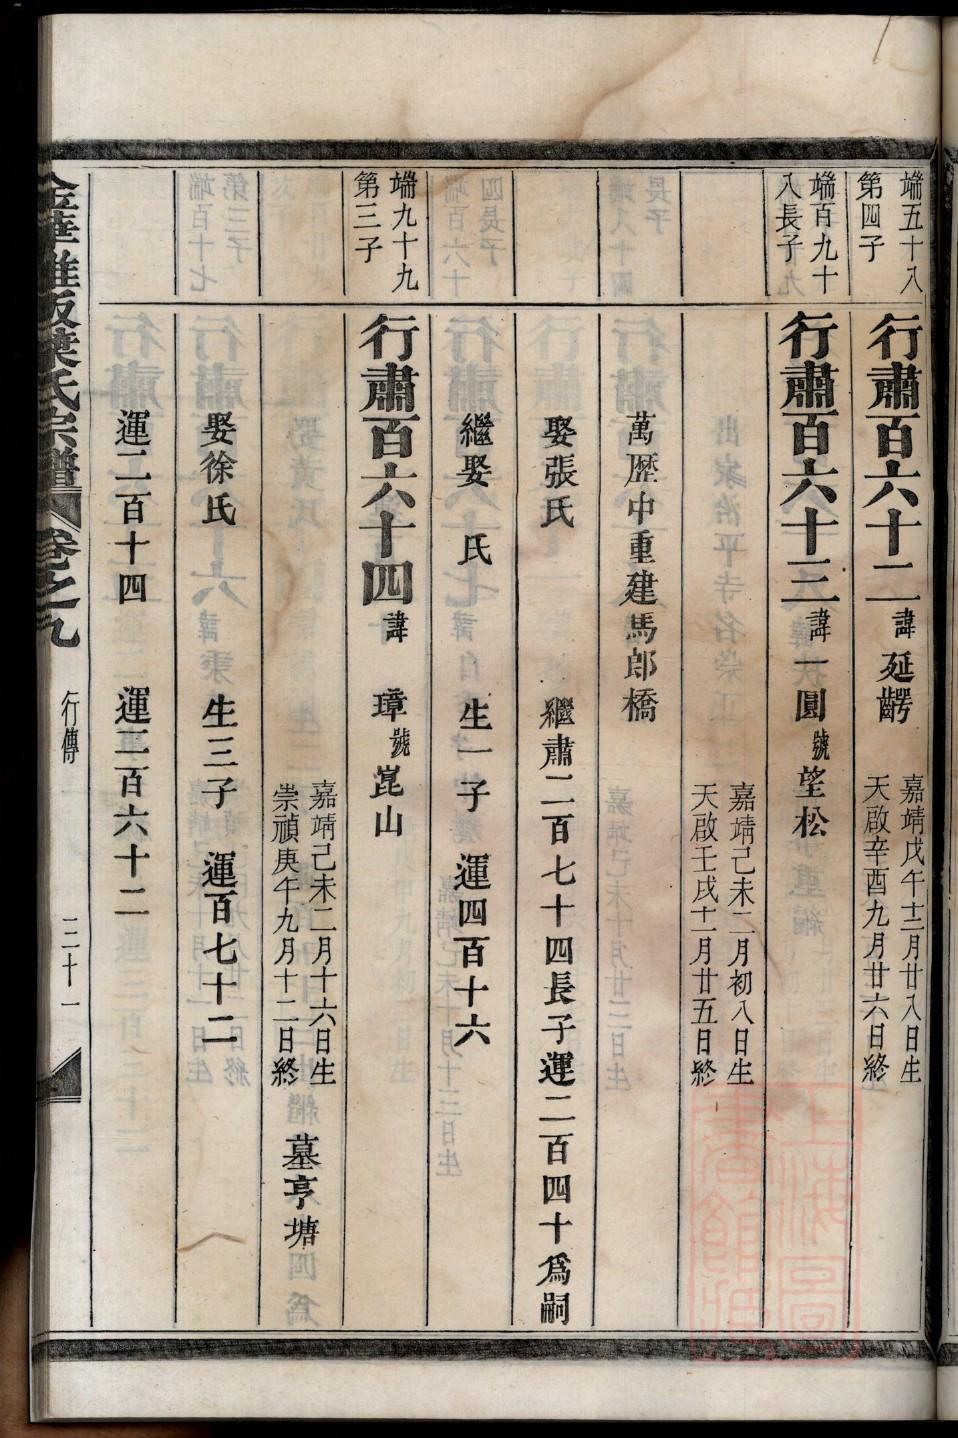 端五十八
第四子
行肅百六十二 諱 延齶
嘉靖戊午十二月廿八日生
天啟辛酉九月廿六日終
端百九十
八長子
行肅百六十三 諱一圓 號望松
嘉靖己未二月初八日生
天啟壬戌十一月廿五日終
萬歷中重建馬郎橋
娶張氏 繼肅二百七十四長子運二百四十爲嗣
繼娶 氏 生一子 運四百十六
端九十九
第三子
行肅百六十四 諱 璋 號崑山
嘉靖己未二月十六日生
崇禎庚午九月十二日終
墓亭塘
娶徐氏 生三子 運百七十二
運二百十四 運三百六十二
葉氏宗譜 卷之九 行傳 三十一
上海圖
書館藏